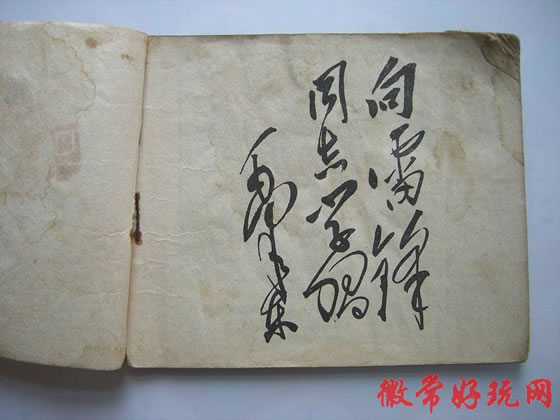 向雷锋
同志学习
毛泽东
徽常好玩网